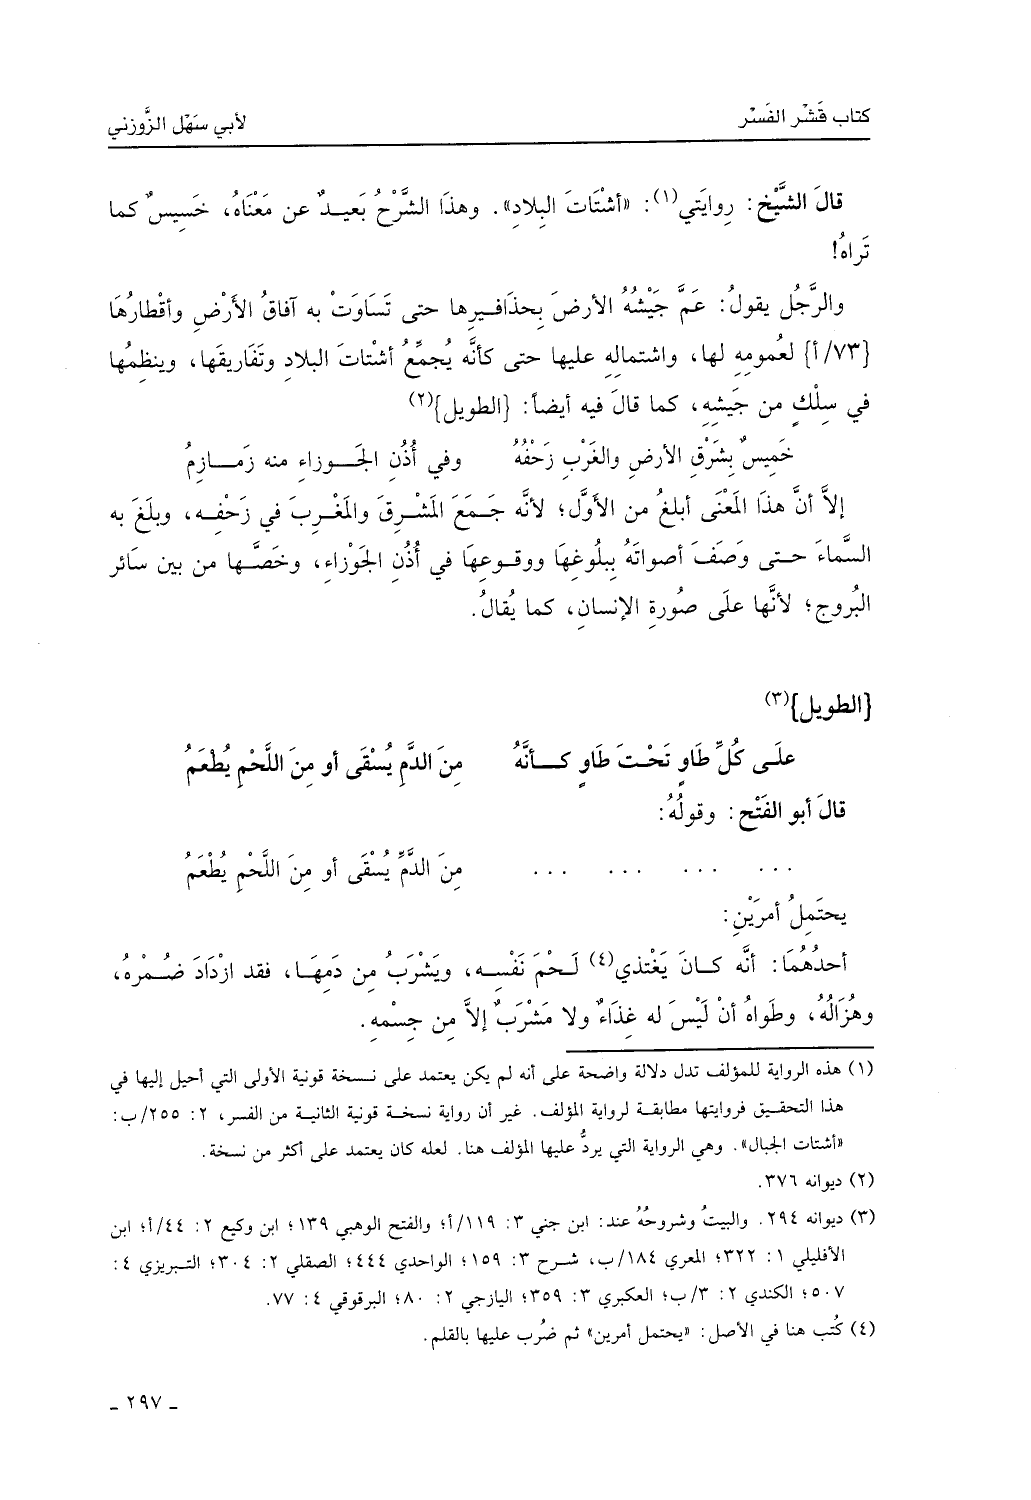 كتاب قَشْر الفَسْر
لأبي سَهْل الزَّوزني
قالَ الشَّيْخ: رِوايَتي(١): «أشْتَاتَ البِلادِ». وهذَا الشَّرْحُ بَعيدٌ عن مَعْنَاهُ، خَسِيسٌ كما
تَراهُ!
والرَّجُل يقولُ: عَمَّ جَيْشُهُ الأرضَ بِحذَافيرِها حتى تَسَاوَتْ به آفاقُ الأَرْضِ وأقْطارُهَا
{٧٣/أ} لعُمومِهِ لها، واشتمالِهِ عليها حتى كأنَّه يُجمِّعُ أشْتاتَ البلادِ وتَفَاريقَها، وينظِمُها
في سِلْكٍ من جَيشِهِ، كما قالَ فيه أيضاً: {الطويل}(٢)
خَمِيسٌ بِشَرْقِ الأرضِ والغَرْبِ زَحْفُهُ وفي أُذُنِ الجَوزاءِ منه زَمازِمُ
إلاَّ أنَّ هذَا المَعْنَى أبلغُ من الأَوَّل؛ لأنَّه جَمَعَ المَشْرِقَ والمَغْرِبَ في زَحْفِه، وبلَغَ به
السَّماءَ حتى وَصَفَ أصواتَهُ بِبلُوغِهَا ووقوعِهَا في أُذُنِ الجَوْزاءِ، وخَصَّها من بين سَائر
البُروج؛ لأنَّها علَى صُورةِ الإنسانِ، كما يُقالُ.
{الطويل}(٣)
علَى كُلِّ طَاوٍ تَحْتَ طَاوٍ كأنَّهُ مِنَ الدَّمِ يُسْقَى أو مِنَ اللَّحْمِ يُطْعَمُ
قالَ أبو الفَتْح: وقولُهُ:
... ... ... ... مِنَ الدَّمِّ يُسْقَى أو مِنَ اللَّحْمِ يُطْعَمُ
يحتَمِلُ أمرَيْنِ:
أحدُهُمَا: أنَّه كانَ يَغْتذي(٤) لَحْمَ نَفْسِه، ويَشْرَبُ مِن دَمِهَا، فقد ازْدَادَ ضُمْرهُ،
وهُزَالُهُ، وطَواهُ أنْ لَيْسَ له غِذَاءٌ ولا مَشْرَبٌ إلاَّ مِن جِسْمهِ.
(١) هذه الرواية للمؤلف تدل دلالة واضحة على أنه لم يكن يعتمد على نسخة قونية الأولى التي أحيل إليها في
هذا التحقيق فروايتها مطابقة لرواية المؤلف. غير أن رواية نسخة قونية الثانية من الفسر، ٢: ٢٥٥/ب:
«أشتات الجبال». وهي الرواية التي يردُّ عليها المؤلف هنا. لعله كان يعتمد على أكثر من نسخة.
(٢) ديوانه ٣٧٦.
(٣) ديوانه ٢٩٤. والبيتُ وشروحُهُ عند: ابن جني ٣: ١١٩/أ؛ والفتح الوهبي ١٣٩؛ ابن وكيع ٢: ٤٤/أ؛ ابن
الأفليلي ١: ٣٢٢؛ المعري ١٨٤/ب، شرح ٣: ١٥٩؛ الواحدي ٤٤٤؛ الصقلي ٢: ٣٠٤؛ التبريزي ٤:
٥٠٧؛ الكندي ٢: ٣/ب؛ العكبري ٣: ٣٥٩؛ اليازجي ٢: ٨٠؛ البرقوقي ٤: ٧٧.
(٤) كُتب هنا في الأصل: «يحتمل أمرين» ثم ضُرب عليها بالقلم.
ـ ٢٩٧ ـ